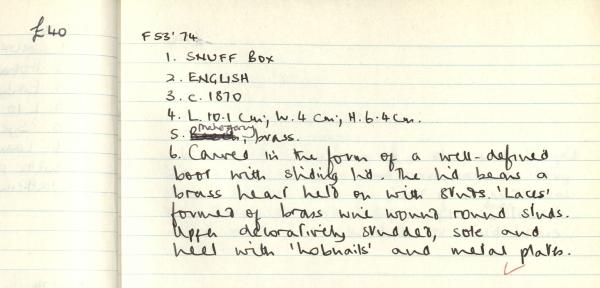 £40
F53'74
1. SNUFF BOX
2. ENGLISH
3. c. 1870
4. L. 10.1 cm; W. 4 cm; H. 6.4 cm.
5. mahogany, brass.
6. Carved in the form of a well-defined
boot with sliding lid. The lid bears a
brass heart held on with studs. 'Laces'
formed of brass wire wound round studs.
Upper decoratively studded, sole and
heel with 'hobnails' and metal plates.